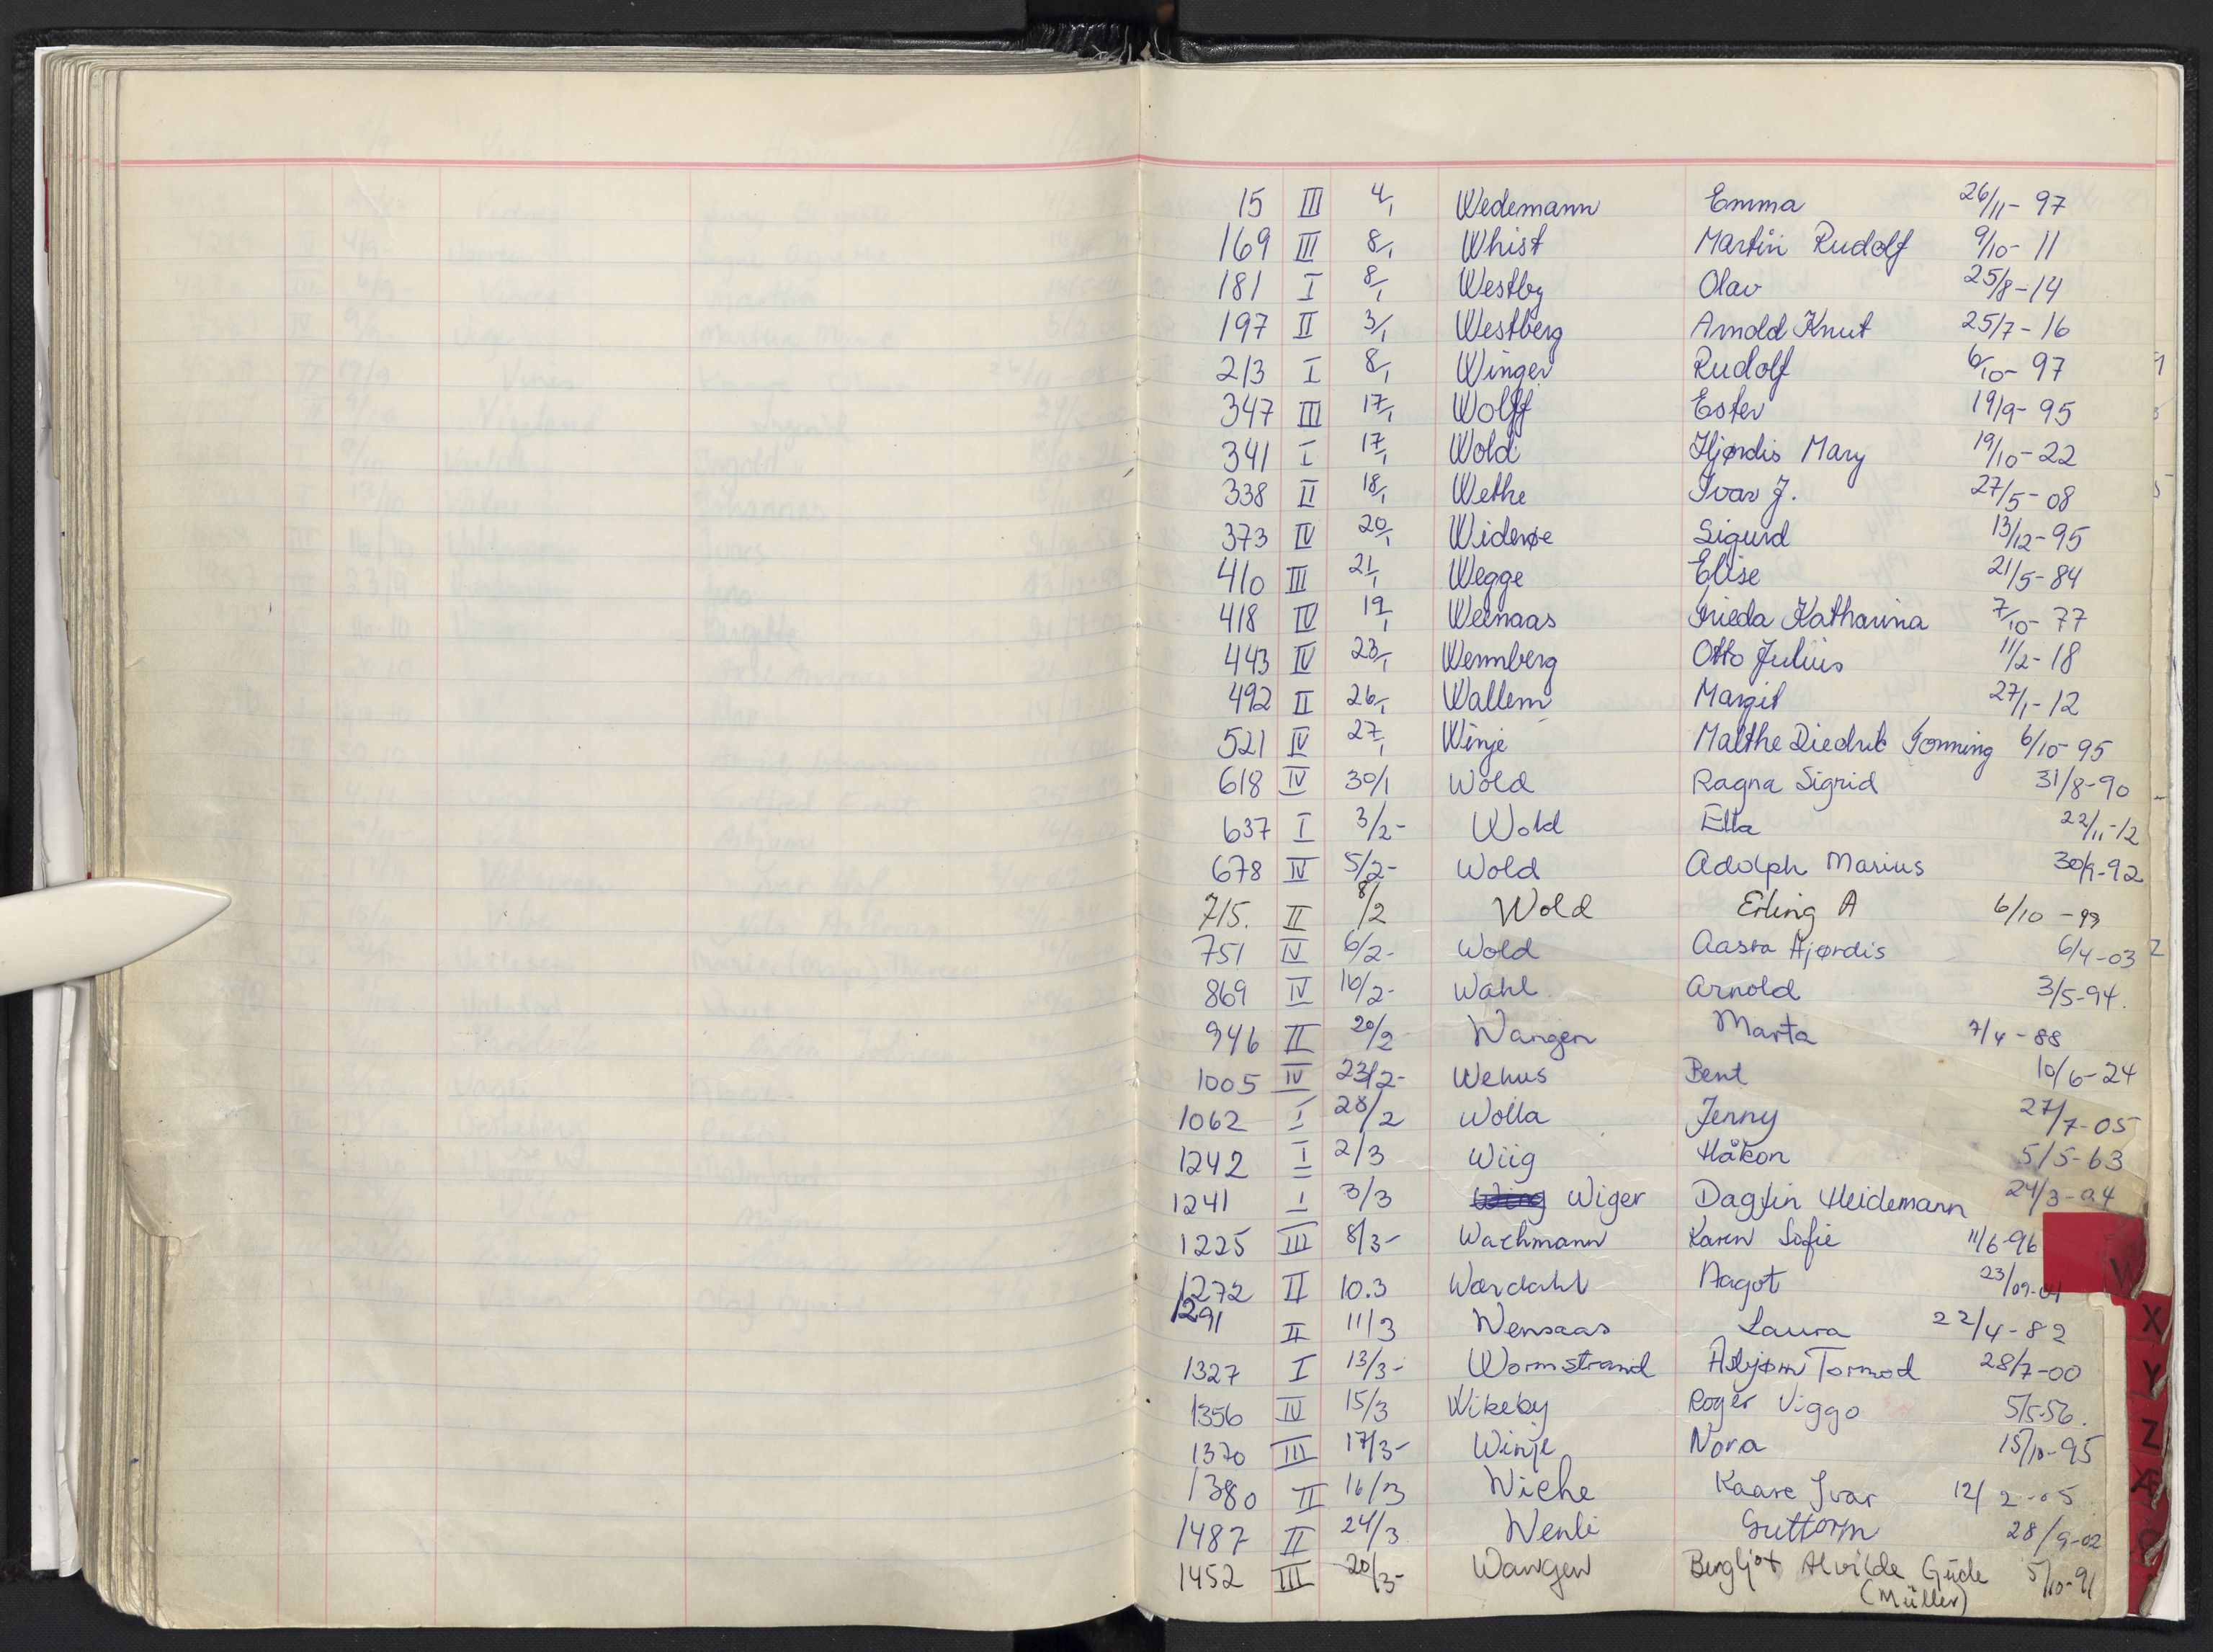 15 III 4/1 Wedemann Emma 26/11-97
169 III 8/1 Whist Martin Rudolf 9/10-11
181 I 8/1 Westby Olav 25/8-14
197 II 3/1 Westberg Arnold Knut 25/7-16
213 I 8/1 Winger Rudolf 6/10-97
347 III 17/1 Wolff Ester 19/9-95
341 I 17/1 Wold Hjørdis Mary 19/10-22
338 II 18/1 Wethe Ivar J. 27/5-08
373 IV 20/1 Widerøe Sigurd 13/12-95
410 III 21/1 Wegge Elise 21/5-84
418 IV 19/1 Welnaas Frieda Katharina 7/10-77
443 IV 23/1 Wennberg Otto Julius 11/2-18
492 II 26/1 Wallem Margit 27/1-12
521 IV 27/1 Winje Malthe Diedrik Tonning 6/10-95
618 IV 30/1 Wold Ragna Sigrid 31/8-90
637 I 3/2- Wold Ella 22/11-12
678 IV 5/2- Wold Adolph Marius 30/9-92
715. II 8/2 Wold Erling A 6/10-93
751 IV 6/2- Wold Aasta Hjørdis 6/4-03
869 IV 16/2- Wahl Arnold 3/5-94.
946 II 20/2 Wangen Marta 7/4-88
1005 IV 23/2- Wehus Bent 10/6-24
1062 I 28/2 Wolla Jenny 27/7-05
1242 I 2/3 Wiig Håkon 5/5-63
1241 I 3/3 Wiger Dagfin Heidemann 24/3-04
1225 III 8/3- Wachmann Karen Sofie 11/6-96
1272 II 10.3 Wærdahl Aagot 23/09-01
1291 II 11/3 Wensaas Laura 22/4-82
1327 I 13/3- Wormstrand Asbjørn Tormod 28/7-00
1356 IV 15/3 Wikeby Roger Viggo 5/5-56.
1370 III 17/3- Winje Nora 15/10-95
1380 II 16/3 Wiche Kaare Ivar 12/2-05
1487 II 24/3 Wenli Guttorm 28/9-02
1452 III 20/3- Wangen Bergljot Alvilde Gude 5/10-91
(Müller)
W
X
Y
Z
Æ